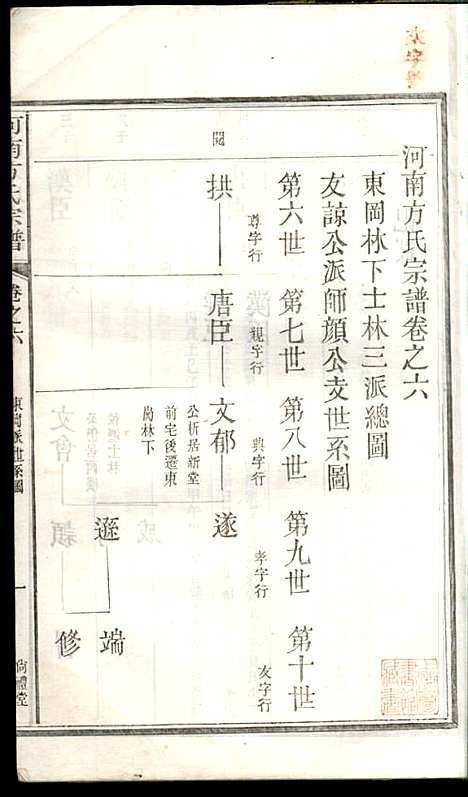 河南方氏宗譜卷之六
東岡林下士林三派總圖
友諒公派師顏公支世系圖
第六世
尊字行
第七世
親字行
第八世
興字行
第九世
孝字行
第十世
友字行
閱
拱
唐臣
文郁
遂
公析居新堂
前宅後遷東
崗林下
遜
端
修
河南方氏宗譜
卷之六
東岡派世系圖
一
尚禮堂